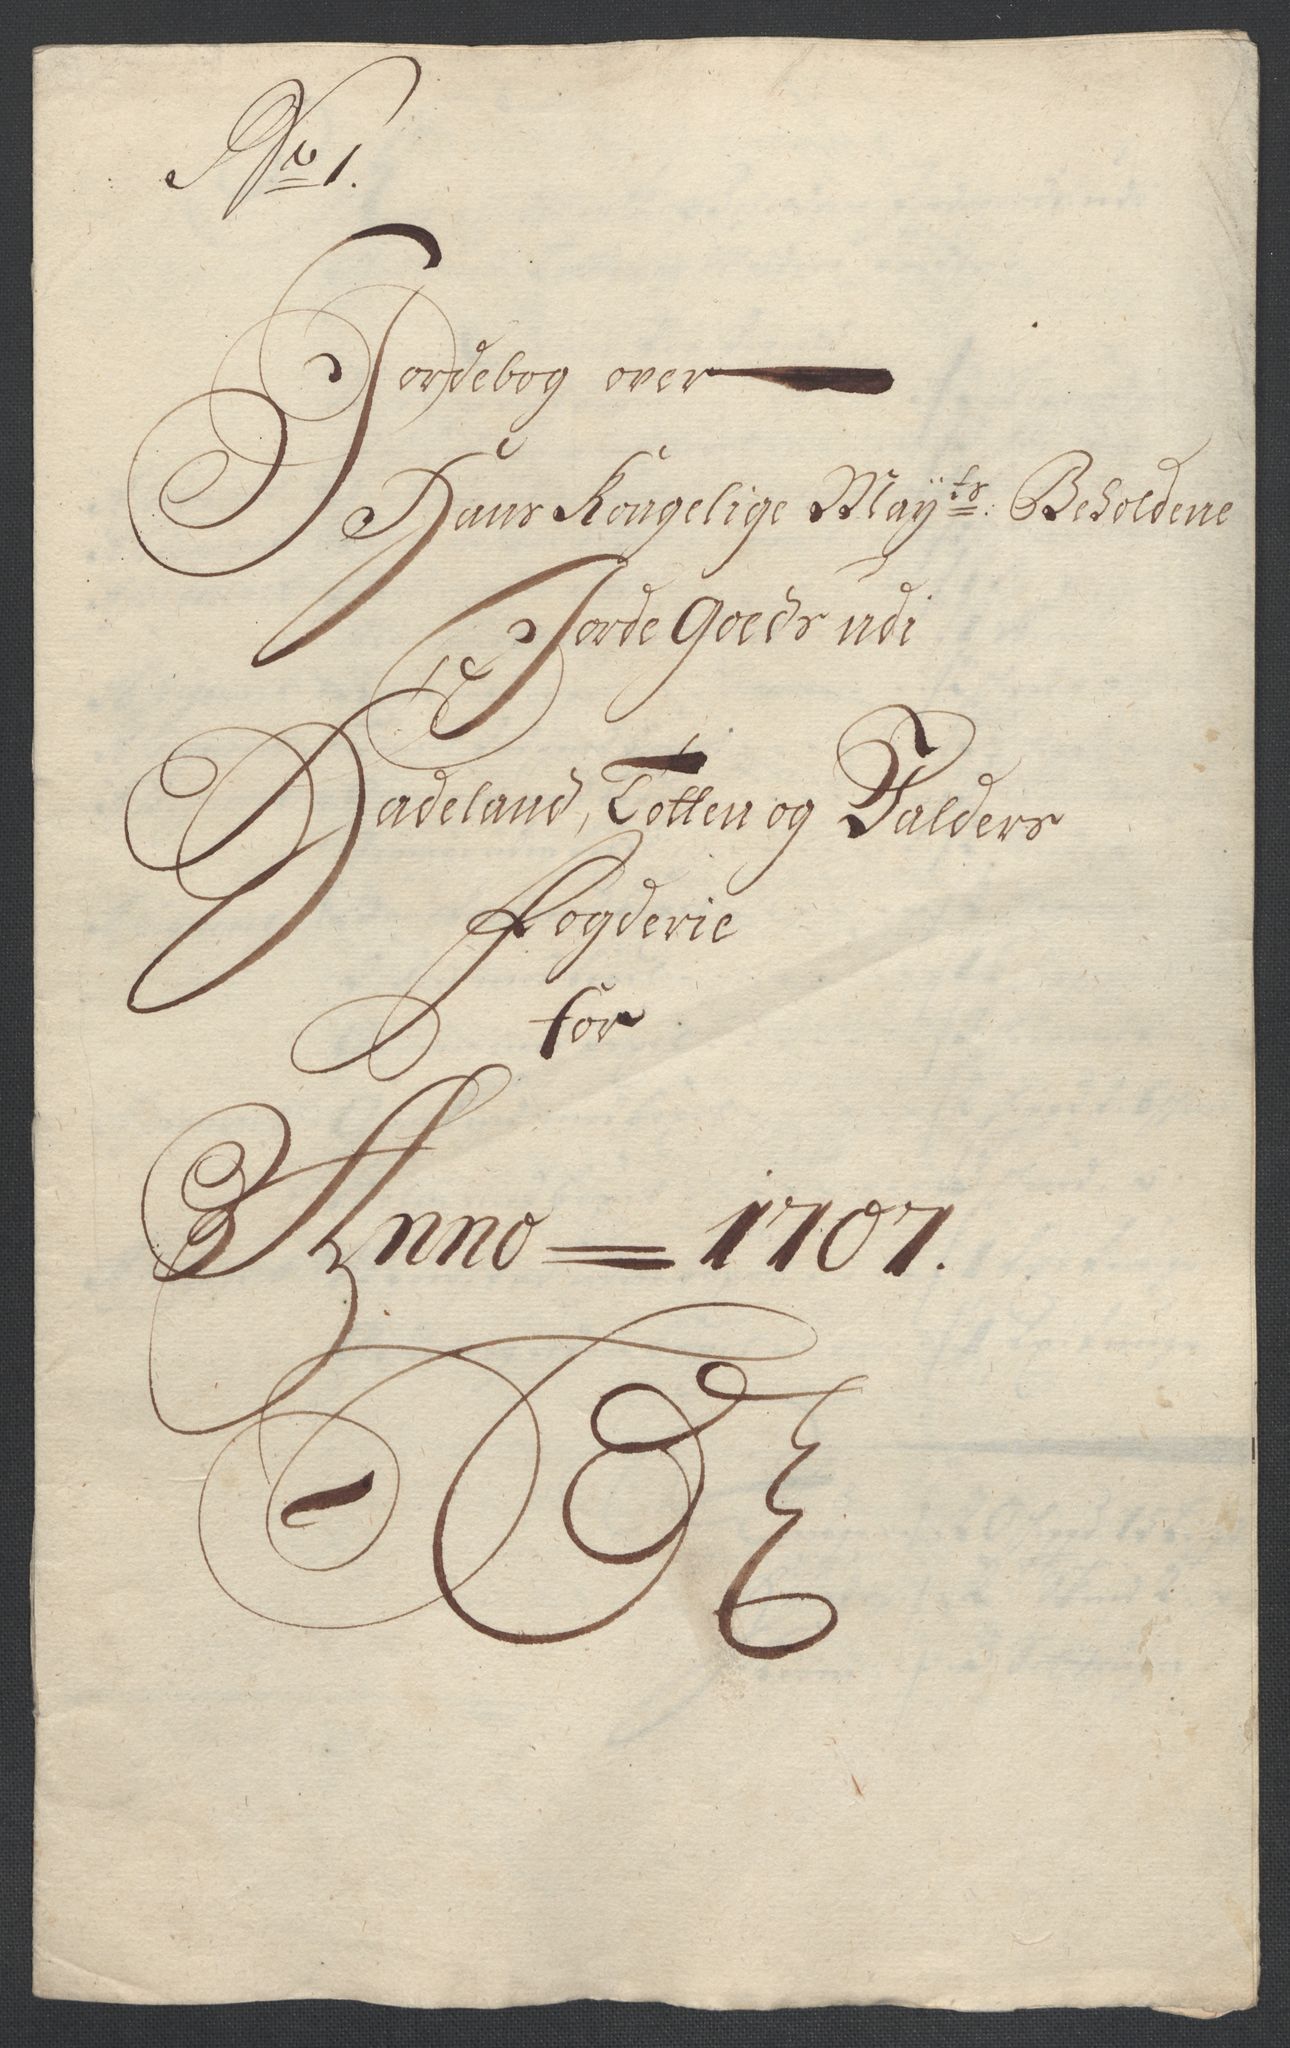 No 1.
Jordebog over
Hans Kongelige Mayts. Beholdene
Jorde Goeds udi
Hadeland, Totten og Valders
Fogderie
for
Anno = 1707.